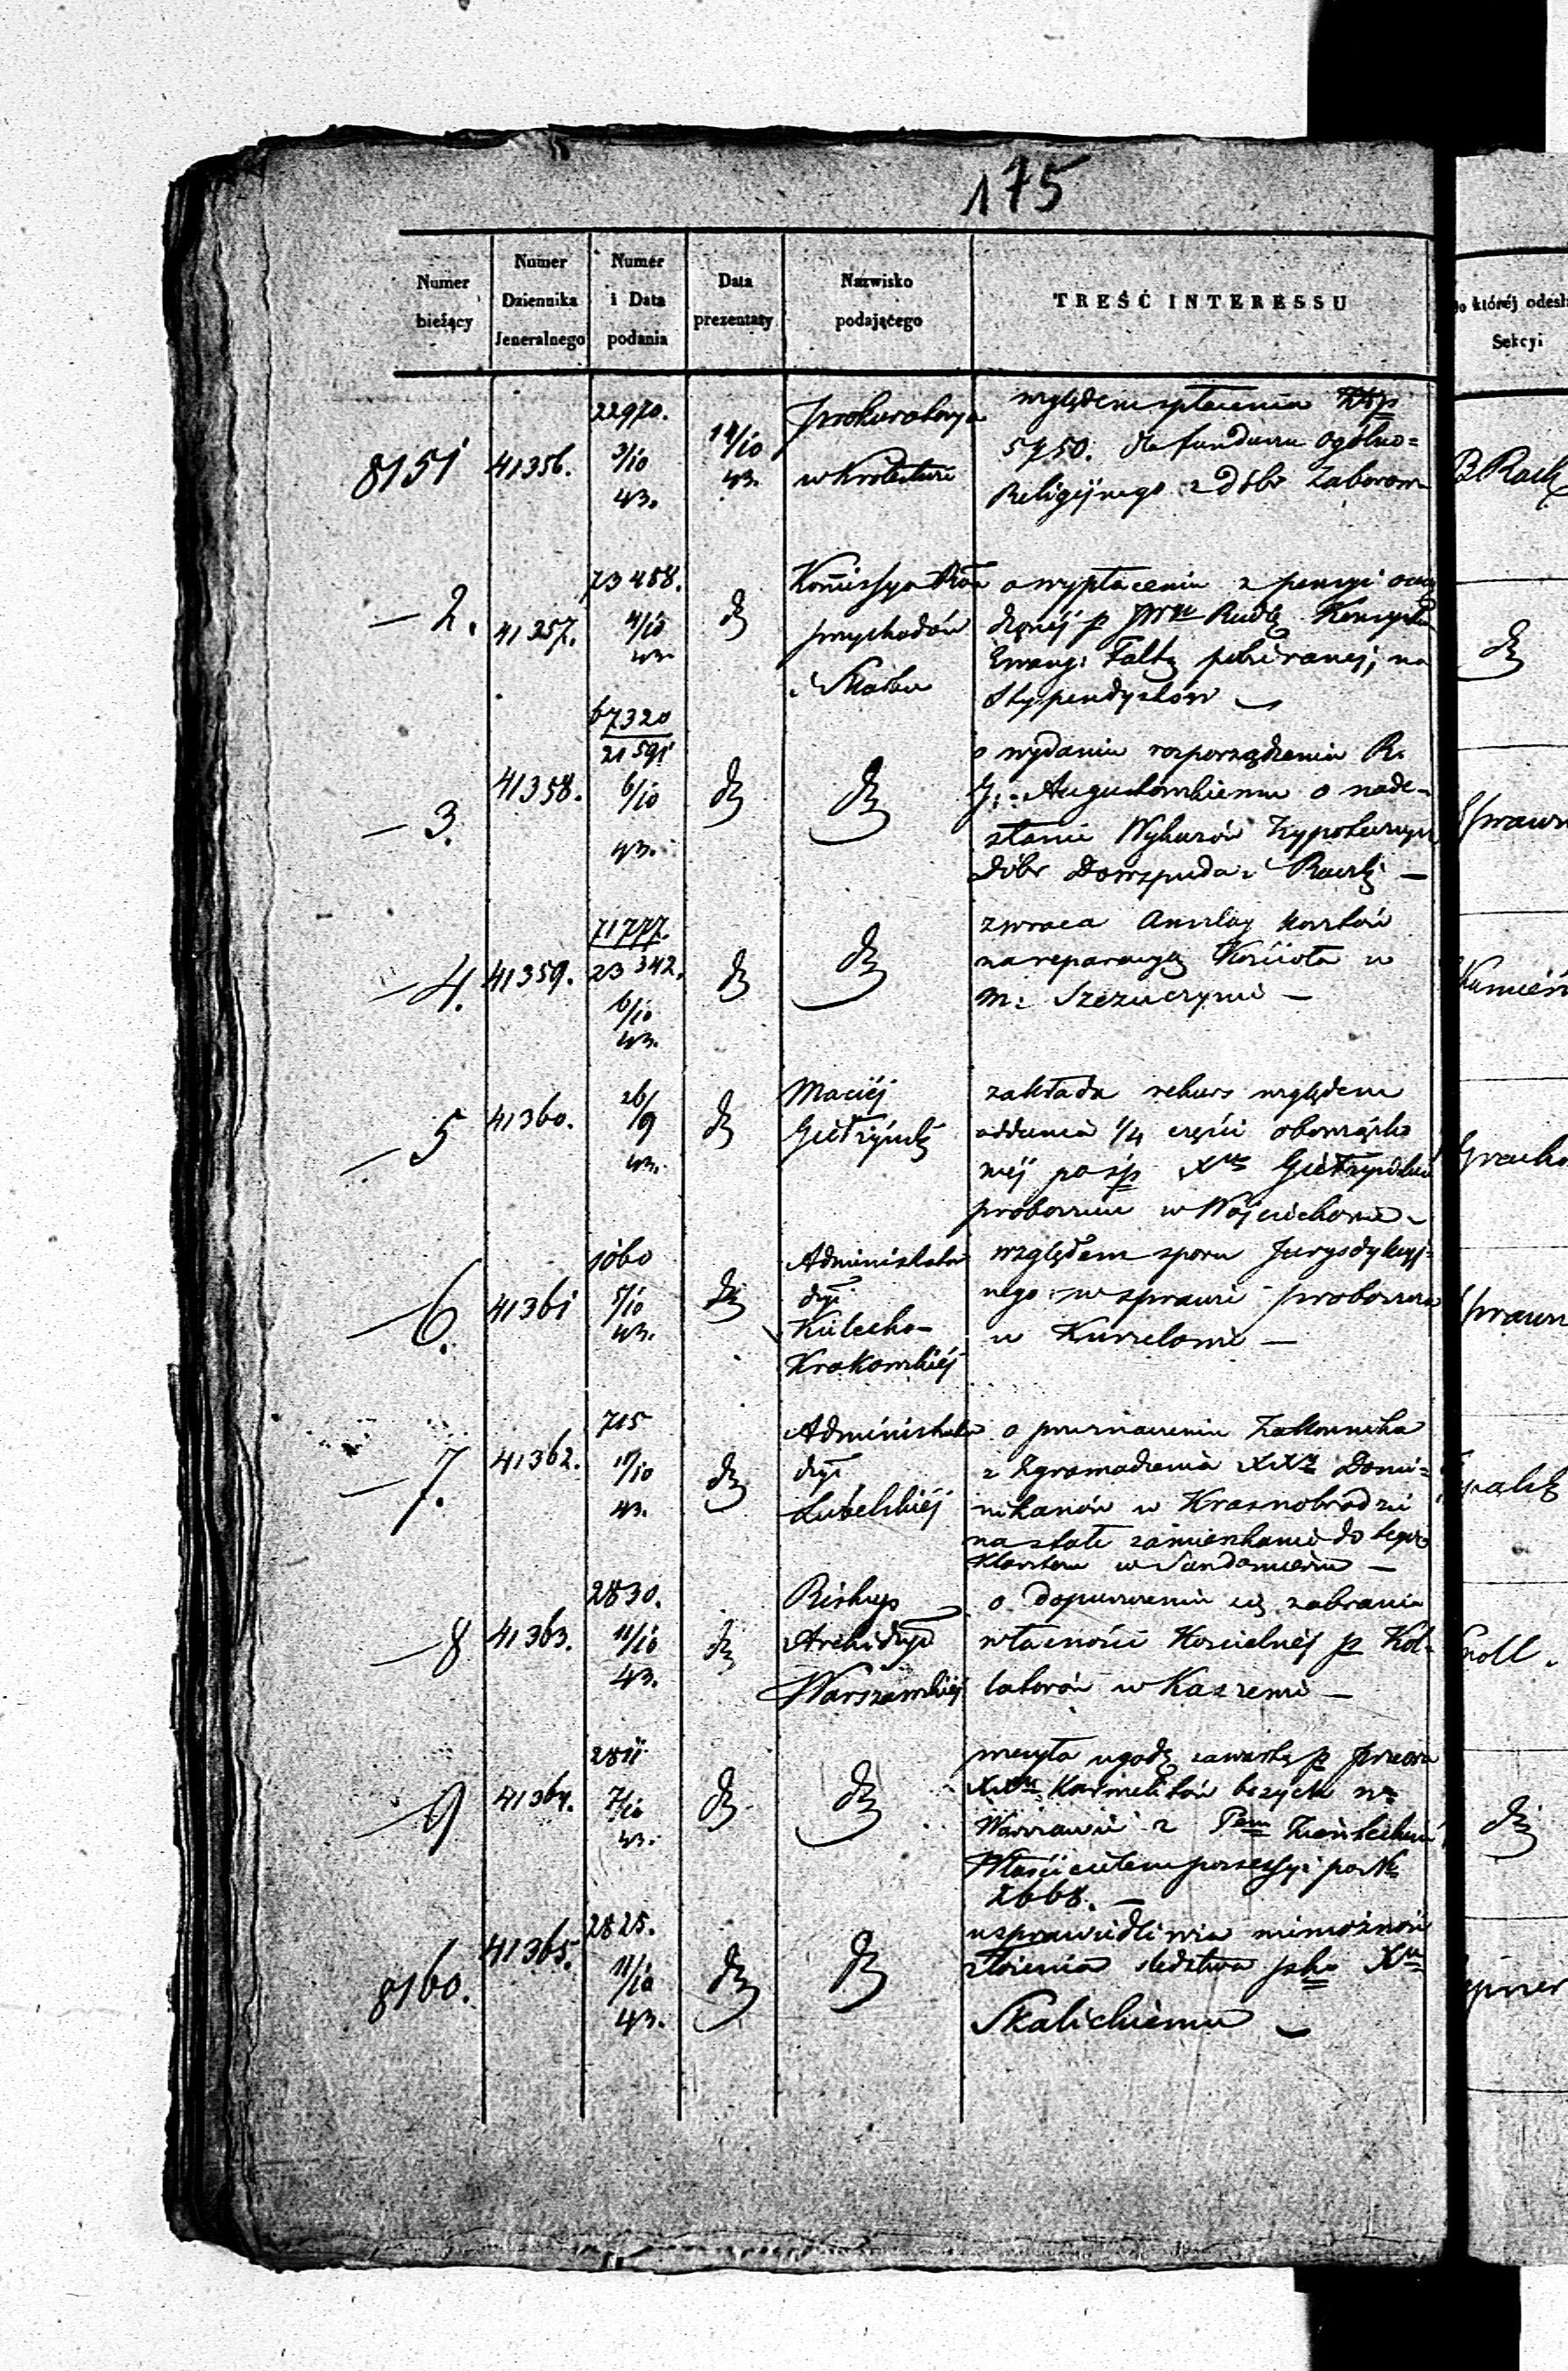 175
Numer bieżący
Numer Dziennika Jeneralnego
Numer i Data podania
Data prezentaty
Nazwisko podającego
TREŚĆ INTERESSU
do któréj odesł
Sekcyi
8151 41356. 22970. 3/10 43. 14/10 43.
Prokuratorya
w Królestwie
względem spłacenia
5750. dla funduszu Ogólno=
Religijnego z dóbr Zaborow
B Rach
— 2. 41357. 73458. 4/10 43. dº
Kom̄issya
przychodów
i Skarbu
o wypłacenie z pensyi
p Radę
Ewang: Faltz pobiéranej, na
Stypendystów —
dº
— 3. 41358. 67320
21591 6/10 43. dº dº
o wydanie rozporządzenia R.
G: Augustowskiemu o nade=
słanie Wykazów Hypotecznych
dóbr Dowspuda i Raczki —
Prawn
— 4. 41359. 71777.
23342. 6/10 43. dº dº
zwraca Anszlag kosztów
na reparacyą Kościoła w
M: Szczuczynie —
Kamień
— 5 41360. 26/9 43. dº
Maciéj
Gietrzyński
zakłada rekurs względem
oddania 1/4 części
po śp Xdzu
proboszczu w Wojciechowie —
Gracho
— 6. 41361 1060 5/10 43. dº
Administrator
dyi
Kielecko-
Krakowskiéj
względem sporu Jurysdykcyj=
nego w sprawie proboszcza
w Kurzelowie —
Prawn
— 7. 41362. 715 11/10 43. dº
Administrator
dyi
Lubelskiéj
o przeznaczenie Zakonnika
z Zgromadzenia XXży Domi=
nikanów w Krasnobrodzie
na stałe zamieszkanie do tegoż
Klasztoru w Sandomierzu —
— 8 41363. 2830. 11/10 43. dº
Biskup
Archidyi
Warszawskiéj
o dopuszczenie się zabrania
własności Kościelnéj p Kol=
latorów w Kazzemie —
noll.
— 9 41364. 2811 7/10 43. dº dº
ugodę zawartą p Przeora
XXży Karmelitów bosych w
Warszawie z Pem
Właścicielem possessyi po No
2668. —
dº
8160. 41365. 2825. 11/10 43. dº dº
usprawiedliwia niemożność
złożenia śledztwa pko Xdzu
Skalickiemu —